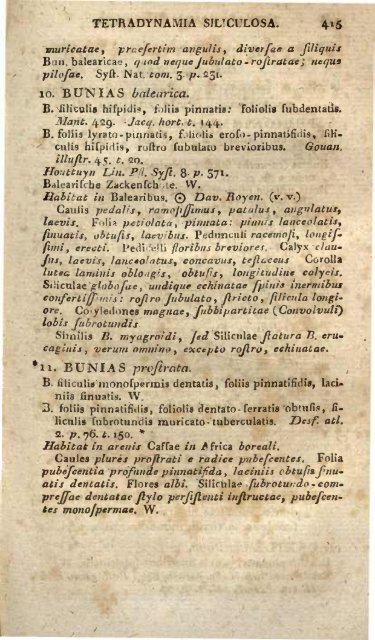 TETRADYNAMIA SILICULOSA. 415
muricatae, praesertim angulis, diversae a siliquis
Bun. balearicae, quod neque subulato-rostratae; neque
pilosae. Syst. Nat. tom. 3. p. 231.
10. BUNIAS balearica.
B. siliculis hispidis, foliis pinnatis: foliolis subdentatis.
Mant. 429. Jacq. hort. t. 144.
B. foliis lyrato-pinnatis, foliolis eroso-pinnatifidis, sili-
culis hispidis, rostro subulato brevioribus. Gouan.
illustr. 45. t. 20.
Houttuyn Lin. Pfl. Syst. 8. p. 371.
Balearische Zackenschote. W.
Habitat in Balearibus. ☉ Dav. Royen. (v. v.)
Caulis pedalis, ramosissimus, patulus, angulatus,
laevis. Folia petiolata, pinnata: pinnis lanceolatis,
sinuatis, obtusis, laevibus. Pedunculi racemosi, longis-
simi, erecti. Pedicelli floribus breviores. Calyx clau-
sus, laevis, lanceolatus, concavus, testaceus Corolla
lutea laminis oblongis, obtusis, longitudine calycis.
Siliculae globosae, undique echinatae spinis inermibus
confertissimis: rostro subulato, stricto, silicula longi-
ore. Cotyledones magnae, subbipartitae (Convolvuli)
lobis subrotundis
Similis B. myagroidi, sed Siliculae statura B. eru-
caginis, verum omnino, excepto rostro, echinatae.
*11. BUNIAS prostrata.
B. siliculis monospermis dentatis, foliis pinnatifidis, laci-
niis sinuatis. W.
B. foliis pinnatifidis, foliolis dentato-serratis obtusis, si-
liculis subrotundis muricato-tuberculatis. Desf. atl.
2. p. 76. t. 150.
Habitat in arenis Cafsae in Africa boreali.
Caules plures prostrati e radice pubescentes. Folia
pubescentia profunde pinnatifida, laciniis obtusis sinu-
atis dentatis. Flores albi. Siliculae subrotundo-com-
pressae dentatae stylo persistenti instructae, pubescen-
tes monospermae. W.